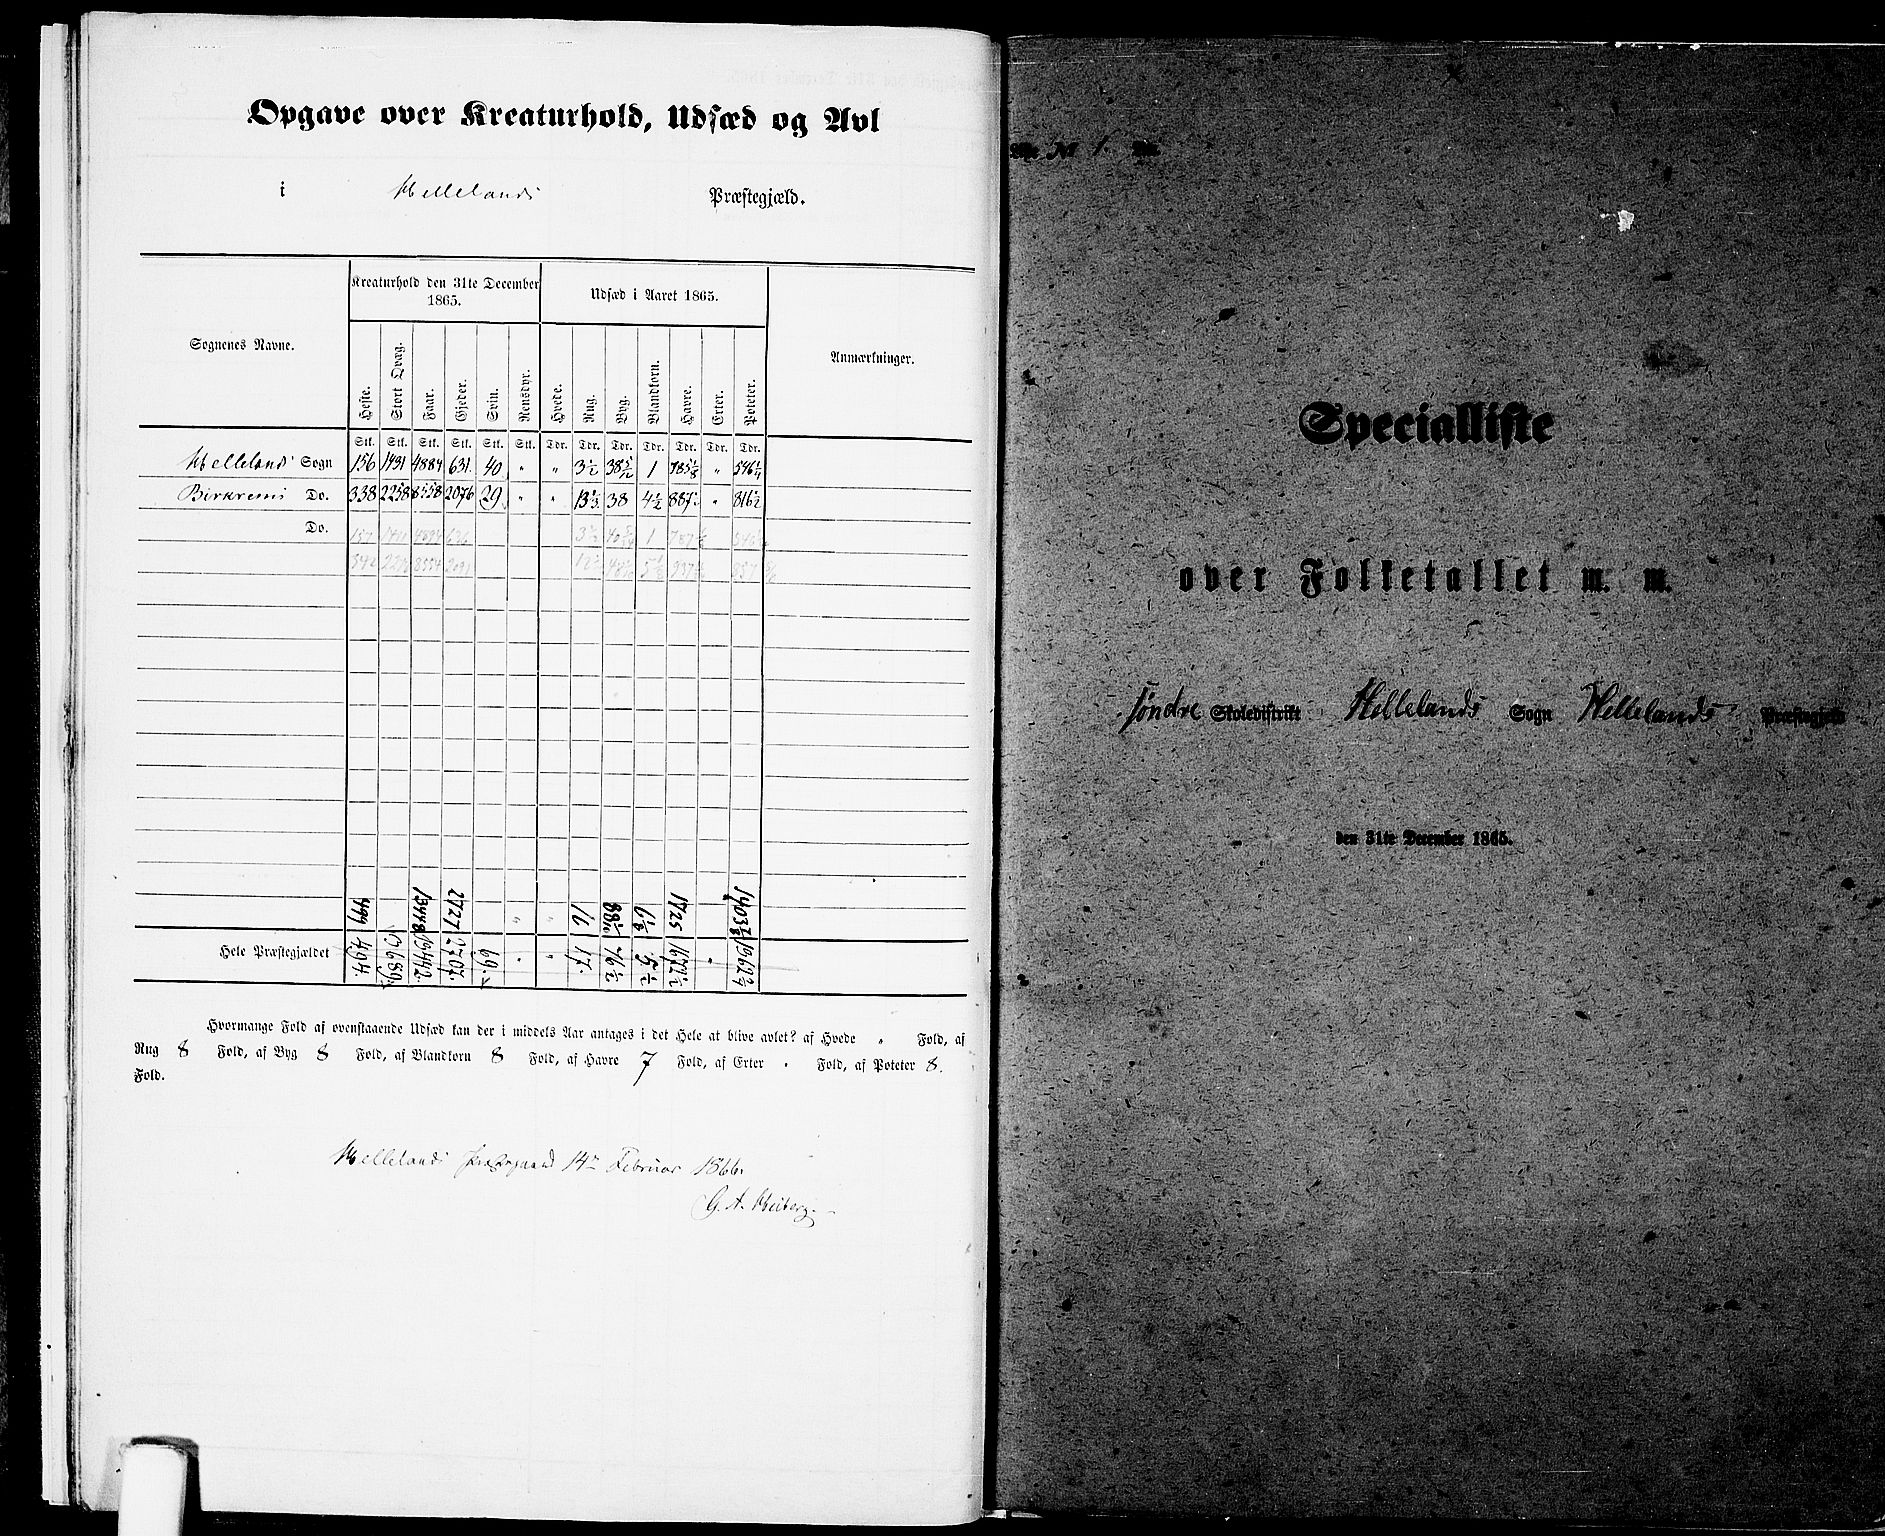 Opgave over Kreaturhold, Udsæd og Avl
i Hellelands Præstegjæld.
Sognenes Navne. Kreaturhold den 31te December 1865. Udsæd i Aaret 1865. Anmærkninger.
Heste. Stort Qvæg. Faar. Gjeder. Svin. Rensdyr. Hvede. Rug. Byg. Blandkorn. Havre. Erter. Poteter.
Stk. Stk. Stk. Stk. Stk. Stk. Tdr. Tdr. Tdr. Tdr. Tdr. Tdr. Tdr.
Hellelands Sogn 156 1431 4884 631. 40 " " 3½ 38 5/12 1 785⅛ " 546¼
Birkrems Do. 338 2258 8558 2076 29. " " 13⅓ 38 4½ 887½ " 816½
Do. 157 4894 636 3½ 1 787
342 8554 2091
499 13448 2727 " " 16 6⅛ 1725
Hele Præstegjældet 494. 3689. 13442. 2707. 69. " " 17. 76½ 5½ 1672½ " 1362¾
Hvormange Fold af ovenstaaende Udsæd kan der i middels Aar antages i det Hele at blive avlet? af Hvede " Fold, af
Rug 8 Fold, af Byg 8 Fold, af Blandkorn 8 Fold, af Havre 7 Fold, af Erter " Fold, af Poteter 8.
Fold.
Hellelands Præstegaard 14de Februar 1866.
G. A. Heiberg.
No 1.
Specialliste
over Folketallet m. m.
i Søndre Skoledistrikt Hellelands Sogn Hellelands Præstegjeld
den 31te December 1865.